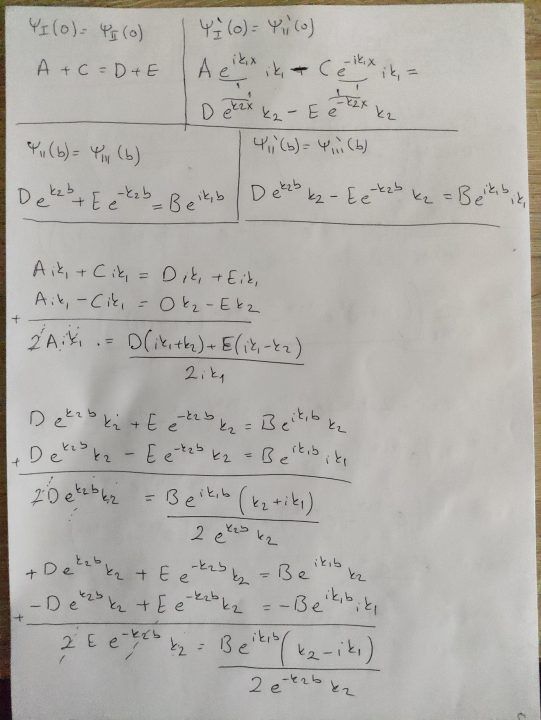 Ψ_I(0) = Ψ_II(0)
A + C = D + E
Ψ_I`(0) = Ψ_II`(0)
A e^{ik₁x} ik₁ - C e^{-ik₁x} ik₁ =
D e^{k₂x} k₂ - E e^{-k₂x} k₂
Ψ_II(b) = Ψ_III(b)
D e^{k₂b} + E e^{-k₂b} = B e^{ik₁b}
Ψ_II`(b) = Ψ_III`(b)
D e^{k₂b} k₂ - E e^{-k₂b} k₂ = B e^{ik₁b} ik₁
A ik₁ + C ik₁ = D ik₁ + E ik₁
A ik₁ - C ik₁ = D k₂ - E k₂
+
2 A ik₁ = D(ik₁+k₂) + E(ik₁-k₂)
2 ik₁
D e^{k₂b} k₂ + E e^{-k₂b} k₂ = B e^{ik₁b} k₂
+ D e^{k₂b} k₂ - E e^{-k₂b} k₂ = B e^{ik₁b} ik₁
2 D e^{k₂b} k₂ = B e^{ik₁b} (k₂ + ik₁)
2 e^{k₂b} k₂
+ D e^{k₂b} k₂ + E e^{-k₂b} k₂ = B e^{ik₁b} k₂
- D e^{k₂b} k₂ + E e^{-k₂b} k₂ = -B e^{ik₁b} ik₁
+
2 E e^{-k₂b} k₂ = B e^{ik₁b} (k₂ - ik₁)
2 e^{-k₂b} k₂